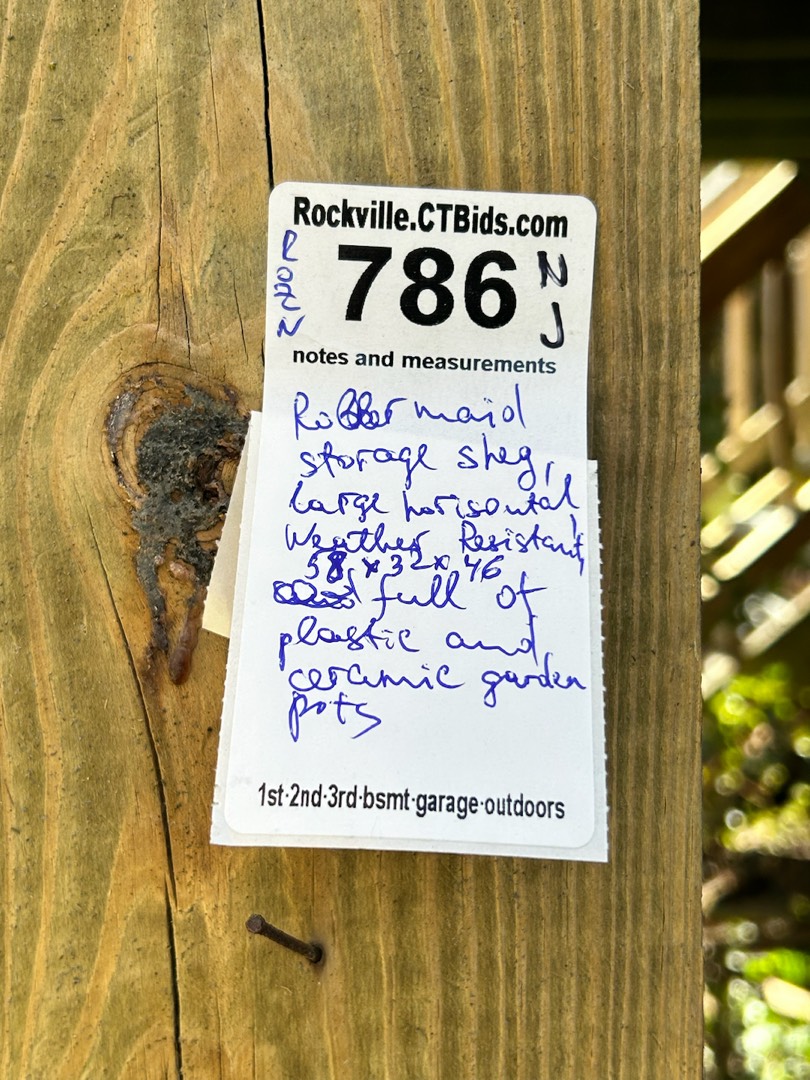 Rockville.CTBids.com
786
N
J
notes and measurements
Rubbermaid
storage sheg,
large horisontal,
Weather Resistant,
58 x 32 x 46
full of
plastic and
ceramic garden
pots
1st·2nd·3rd·bsmt·garage·outdoors